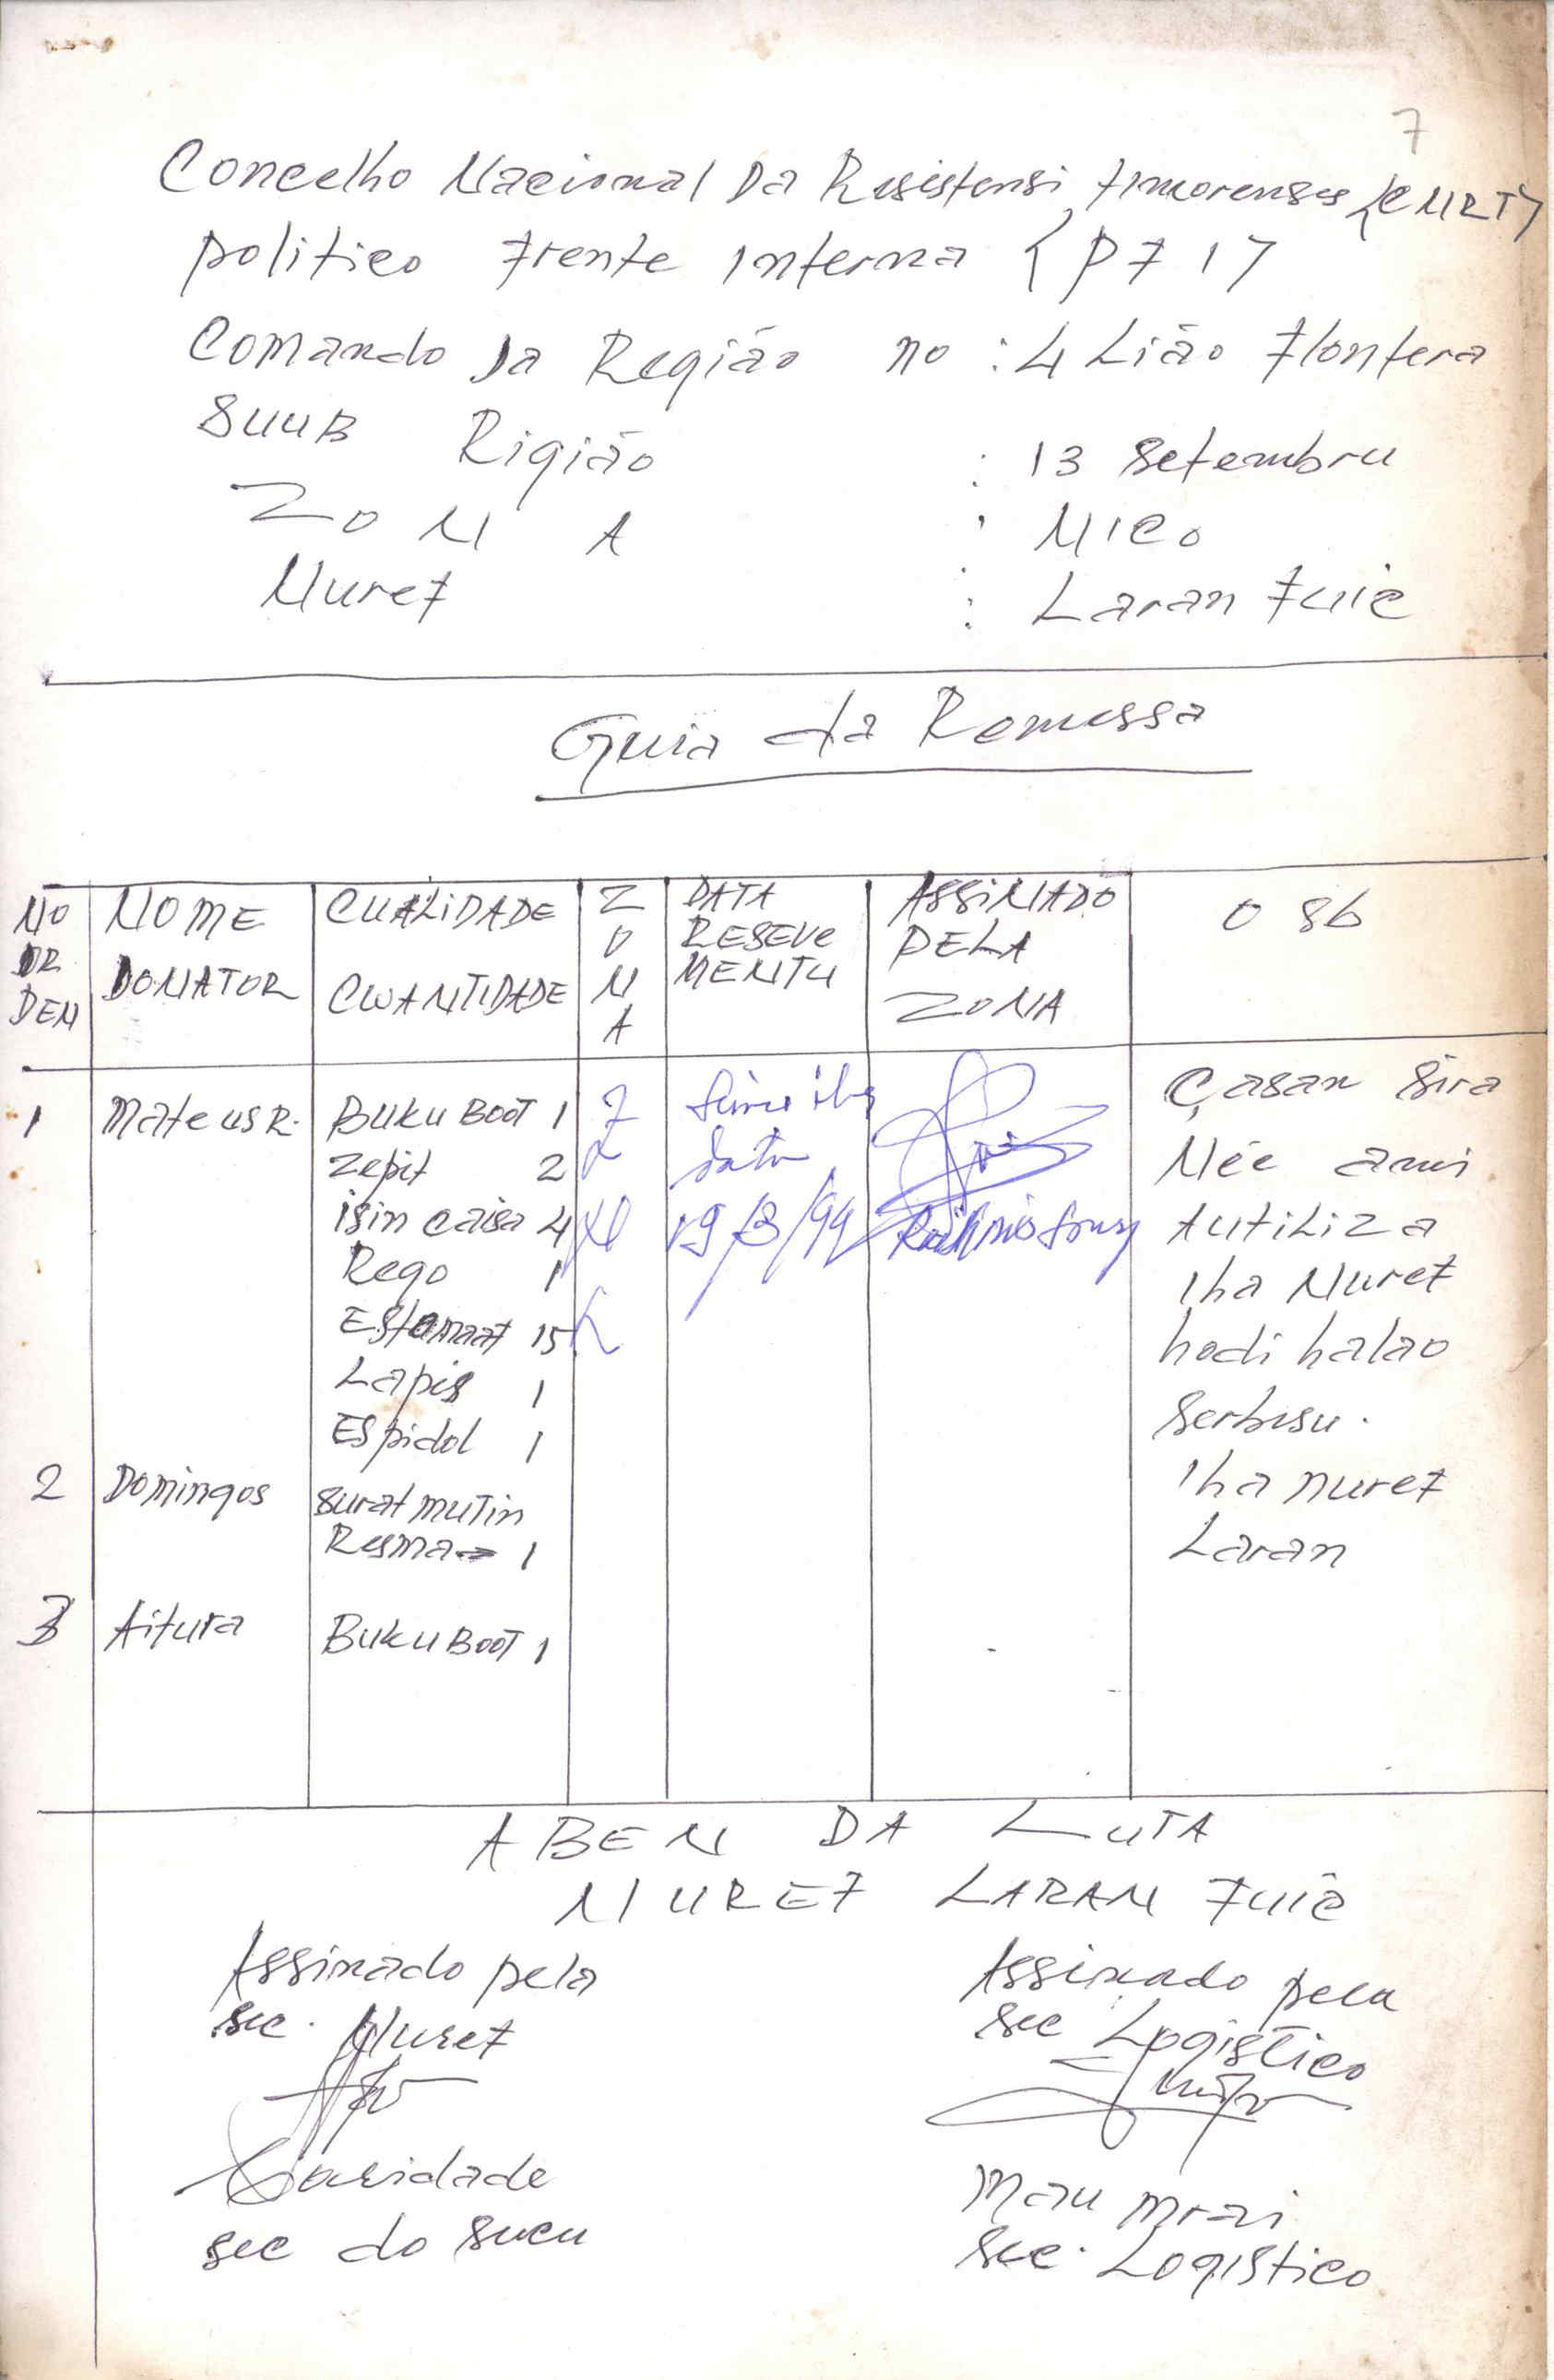 7
Concelho Nacional Da Resistensi timorenses {CNRT}
politico Frente interna {PFI}
Comando Da Região no : 4 Lião Flontera
SUUB Rigião : 13 Setembru
ZONA : NICO
Nuref : Laran Fuic
Guia da Remessa
NO ORDEN NOME DONATOR CUALIDADE CWANTIDADE ZONA DATA RESEVEMENTU ASSINADO PELA ZONA OSB
1 Mateus R. BUKU BOOT 1
Zepit 2
isin caisa 4
Rego 1
Estomaat 15
Lapis 1
Espidol 1
data
19/3/99
Çasan sira
Née ami
tutiliza
iha Nuref
hodi halao
serbisu.
iha nuref
Laran
2 Domingos surat mutin
Resma 1
3 Aitura BUKU BOOT 1
A BEN DA LUTA
NUREF LARAN FUIC
Assinado pela
sec. Nuref
sec do sucu
Assinado pela
sec Logistico
Mau mrai
sec. Logistico